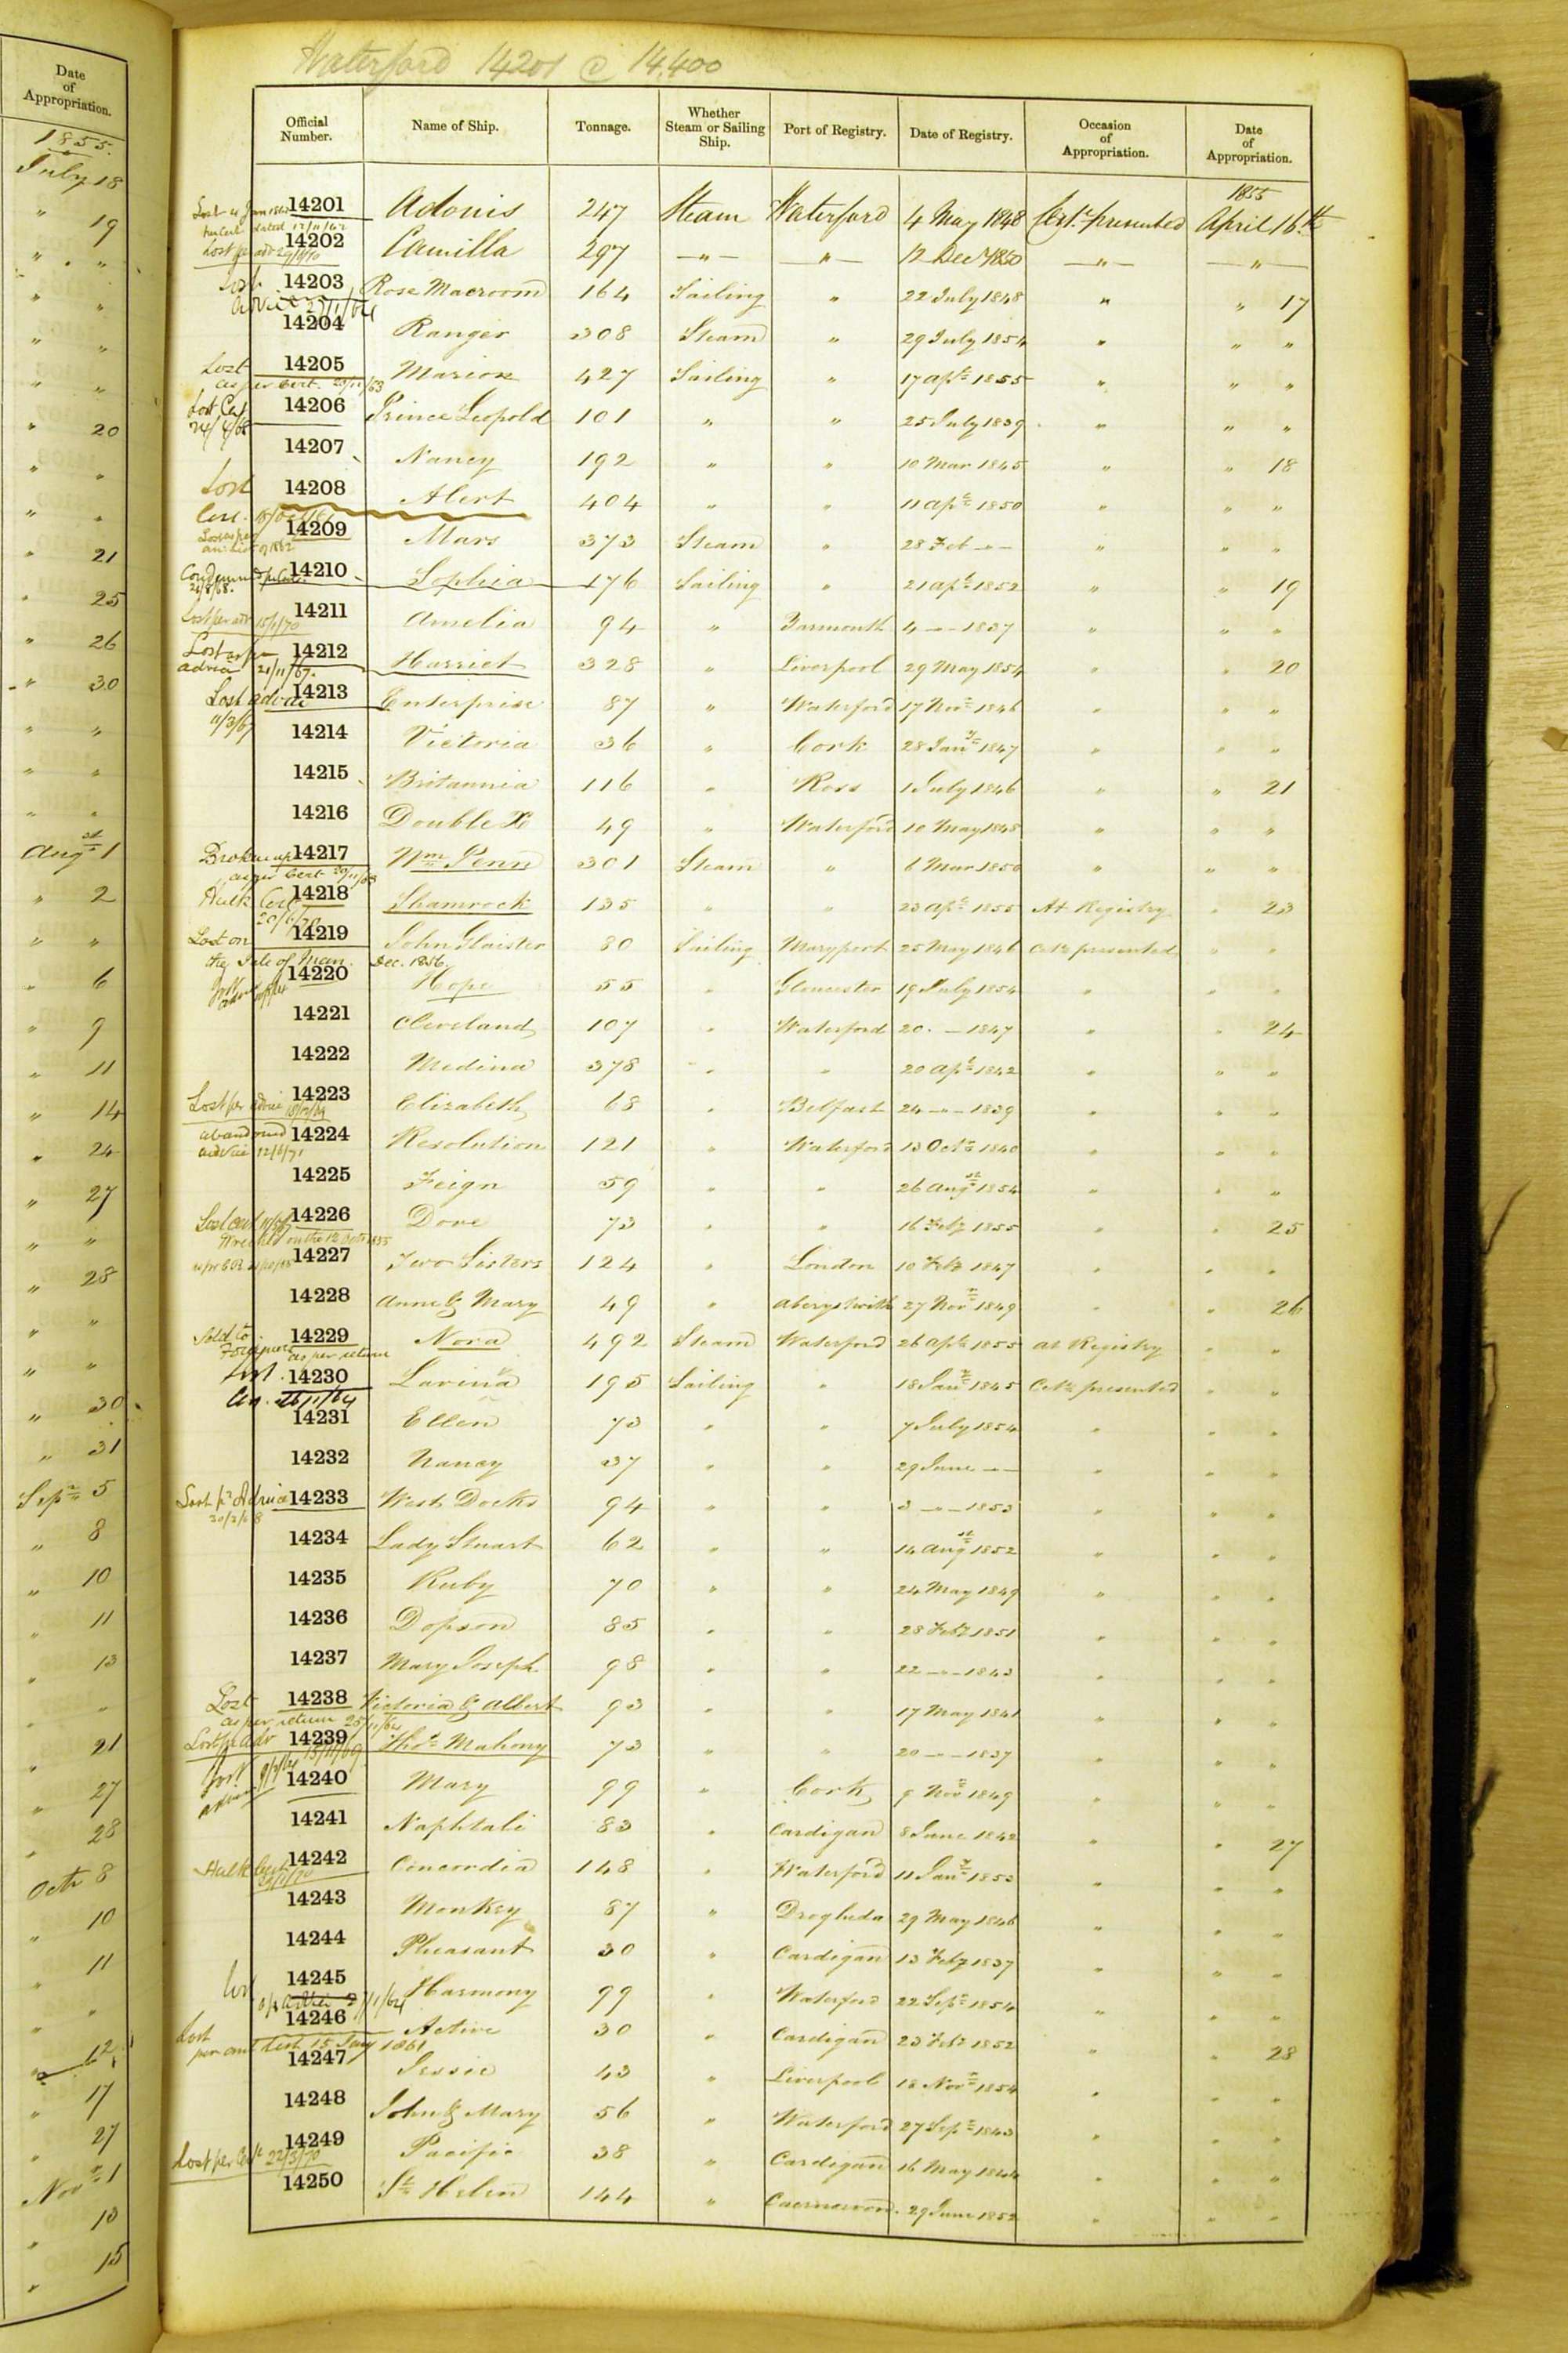 Date
of
Appropriation.
1855.
July 18
" 19
" "
" "
" "
" "
" 20
" "
" "
" 21
" 25
" 26
" 30
" "
" "
" "
Augst 1
" 2
" "
" 6
" 9
" 11
" 14
" 24
" 27
" "
" 28
" "
" "
" 30
" 31
Sepr 5
" 8
" 10
" 11
" 13
" "
" 21
" 27
" 28
Octr 8
" 10
" 11
" "
" 12
" 17
" 27
Novr 1
" 13
" 15
Waterford 14201 @ 14,400
Official Number. Name of Ship. Tonnage. Whether Steam or Sailing Ship. Port of Registry. Date of Registry. Occasion of Appropriation. Date of Appropriation.
1855
14201 Adonis 247 Steam Waterford 4 May 1848 Cert. presented April 16th
Lost per adv 14202 Camilla 297 " " 12 Dec 1850 " "
Lost advice 14203 Rose Macroom 164 Sailing " 22 July 1848 " " 17
14204 Ranger 308 Steam " 29 July 1854 " " "
Lost as per Cert. 14205 Marion 427 Sailing " 17 Apl 1855 " " "
Lost Cert 14206 Prince Leopold 101 " " 25 July 1839 " " "
14207 Nancy 192 " " 10 Mar 1845 " " 18
Lost Cert. 14208 Alert 404 " " 11 Apl 1850 " " "
14209 Mars 373 Steam " 28 Feb " " " "
Condemned per Cert 14210 Sophia 176 Sailing " 21 Apl 1852 " " 19
Lost per adv 15/1/70 14211 Amelia 94 " Yarmouth 4 " 1837 " " "
Lost as per advice 21/11/67. 14212 Harriet 328 " Liverpool 29 May 1854 " " 20
Lost advice 11/3/67 14213 Enterprise 87 " Waterford 17 Novr 1846 " " "
14214 Victoria 36 " Cork 28 Jany 1847 " " "
14215 Britannia 116 " Ross 1 July 1846 " " 21
14216 Double X 49 " Waterford 10 May 1848 " " "
Broken up as per Cert 14217 Wm Penn 301 Steam " 6 Mar 1850 " " "
Hulk Cert 14218 Shamrock 135 " " 23 Apl 1855 At Registry " 23
Lost on the Isle of Man. Dec. 1856. 14219 John Glaister 80 Sailing Maryport 25 May 1846 Certe presented " "
14220 Hope 55 " Gloucester 19 July 1854 " " "
14221 Cleveland 107 " Waterford 20 " 1847 " " 24
14222 Medina 378 " " 20 Apl 1842 " " "
Lost per advice 14223 Elizabeth 68 " Belfast 24 " 1839 " " "
abandoned advice 12/6/71 14224 Resolution 121 " Waterford 13 Octr 1840 " " "
14225 Feign 59 " " 26 Augst 1854 " " "
Lost cert 14226 Dove 73 " " 16 Feby 1855 " " 25
Wrecked on the 12 Octr 1855 14227 Two Sisters 124 " London 10 Feby 1847 " " "
14228 Anne & Mary 49 " Aberystwith 27 Novr 1849 " " 26
Sold to Foreigners as per return 14229 Nora 492 Steam Waterford 26 Apl 1855 at Registry " "
Lost 14230 Lavinia 195 Sailing " 18 Jany 1845 Certe presented " "
14231 Ellen 73 " " 7 July 1854 " " "
14232 Nancy 37 " " 29 June " " " "
Lost pr Advice 14233 West Docks 94 " " 3 " 1853 " " "
14234 Lady Stuart 62 " " 14 Augst 1852 " " "
14235 Ruby 70 " " 24 May 1849 " " "
14236 Dopson 85 " " 28 Feby 1851 " " "
14237 Mary Joseph 98 " " 22 " 1843 " " "
Lost as per return 25/11/64 14238 Victoria & Albert 93 " " 17 May 1841 " " "
Lost pr adv 15/11/69 14239 Thos Mahony 73 " " 20 " 1837 " " "
Lost advice 14240 Mary 99 " Cork 9 Novr 1849 " " "
14241 Naphtali 83 " Cardigan 8 June 1842 " " 27
Hulk Cert 14242 Concordia 148 " Waterford 11 Jany 1853 " " "
14243 Monkey 87 " Drogheda 29 May 1846 " " "
14244 Pleasant 30 " Cardigan 13 Feby 1837 " " "
Lost 14245 Harmony 99 " Waterford 22 Sepr 1854 " " "
Lost per ant List 15 Jany 1861 14246 Active 30 " Cardigan 23 Feby 1852 " " 28
14247 Jessie 43 " Liverpool 18 Novr 1854 " " "
14248 John & Mary 56 " Waterford 27 Sepr 1843 " " "
Lost per Cert 22/3/70 14249 Pacific 38 " Cardigan 16 May 1844 " " "
14250 St Helen 144 " Caernarvon. 29 June 1852 " " "